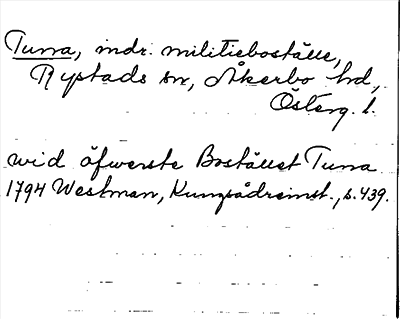 Tuna, indr. militieboställe,
Rystads sn, Åkerbo hd,
Österg. l.
wid öfwerste Bostället Tuna
1794 Westman, Kungsådreinst., s. 439.